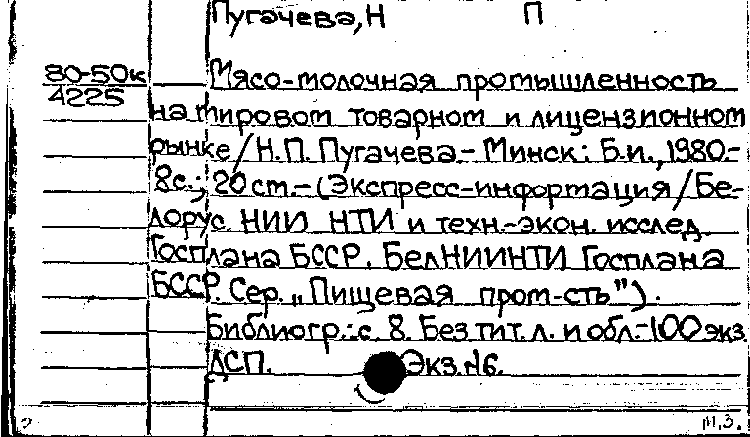 Пугачева, Н П
80-50к Мясо-молочная промышленность
4225
на мировом товарном и лицензионном
рынке/Н.П. Пугачева.- Минск: Б.и., 1980.-
8с.; 20 ст.- (Экспресс-информация/Бе-
лорус. НИИ НТИ и техн.-экон. исслед.
Госплана БССР. БелНИИНТИ Госплана
БССР. Сер. „Пищевая пром-сть").
Библиогр.: с. 8. Без тит. л. и обл.- 100 экз.
ДСП. Экз. №6.
м.з.